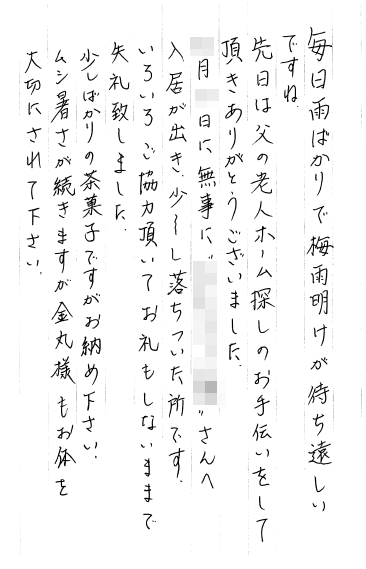 毎日雨ばかりで梅雨明けが待ち遠しい
ですね.
先日は父の老人ホーム探しのお手伝いをして
頂きありがとうございました.
月 日に無事に〝 〟さんへ
入居が出き、少〜し落ちついた所です.
いろいろご協力頂いてお礼もしないままで
失礼致しました.
少しばかりの茶菓子ですがお納め下さい.
ムシ暑さが続きますが金丸様もお体を
大切にされて下さい.